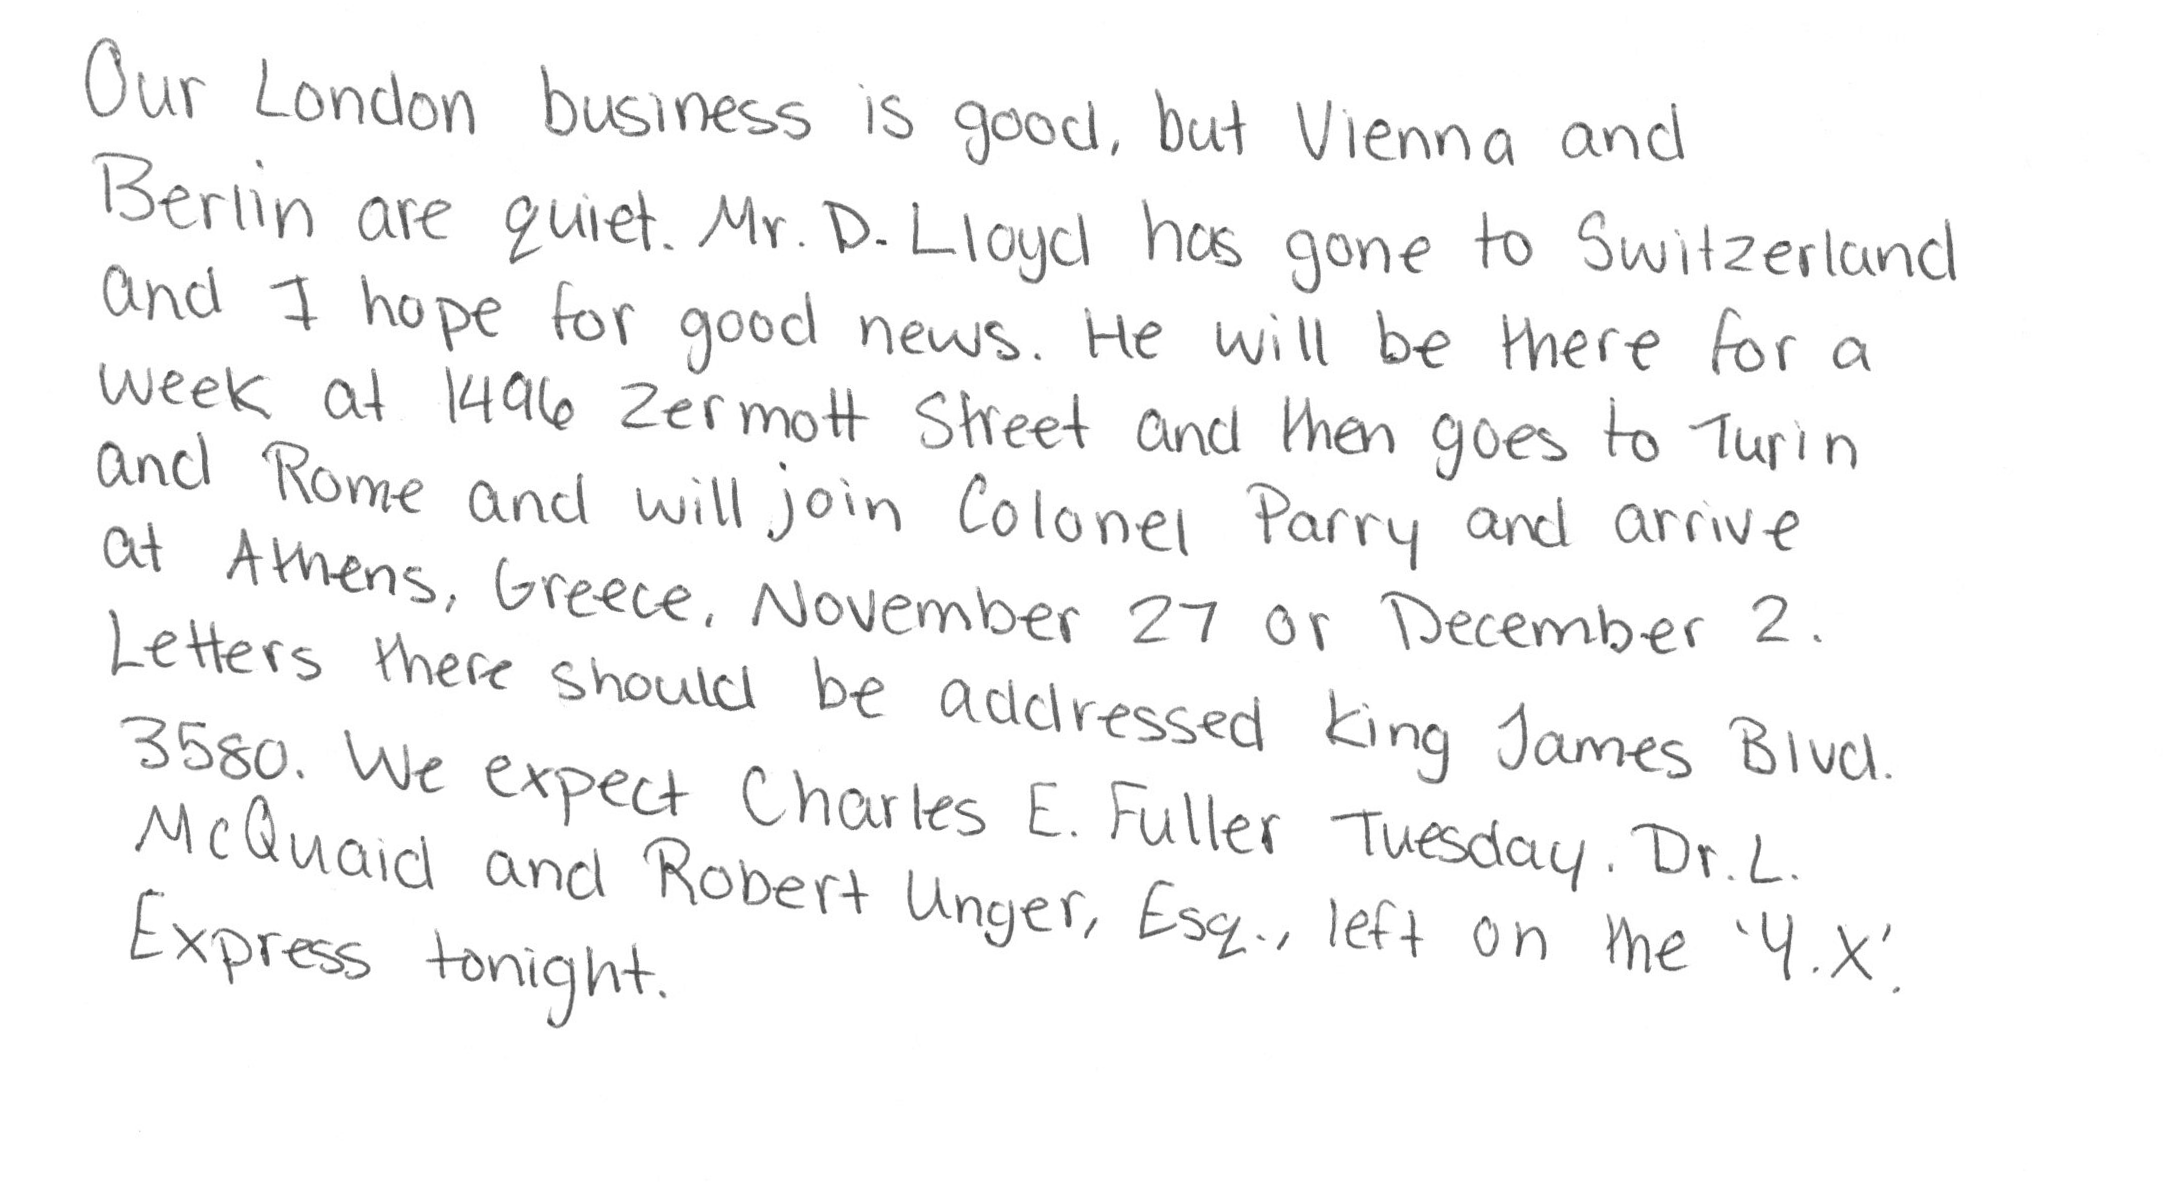 Our London business is good, but Vienna and
Berlin are quiet. Mr. D. Lloyd has gone to Switzerland
and I hope for good news. He will be there for a
week at 1496 Zermott Street and then goes to Turin
and Rome and will join Colonel Parry and arrive
at Athens, Greece, November 27 or December 2.
Letters there should be addressed King James Blvd.
3580. We expect Charles E. Fuller Tuesday. Dr. L.
McQuaid and Robert Unger, Esq., left on the 'Y.X'.
Express tonight.